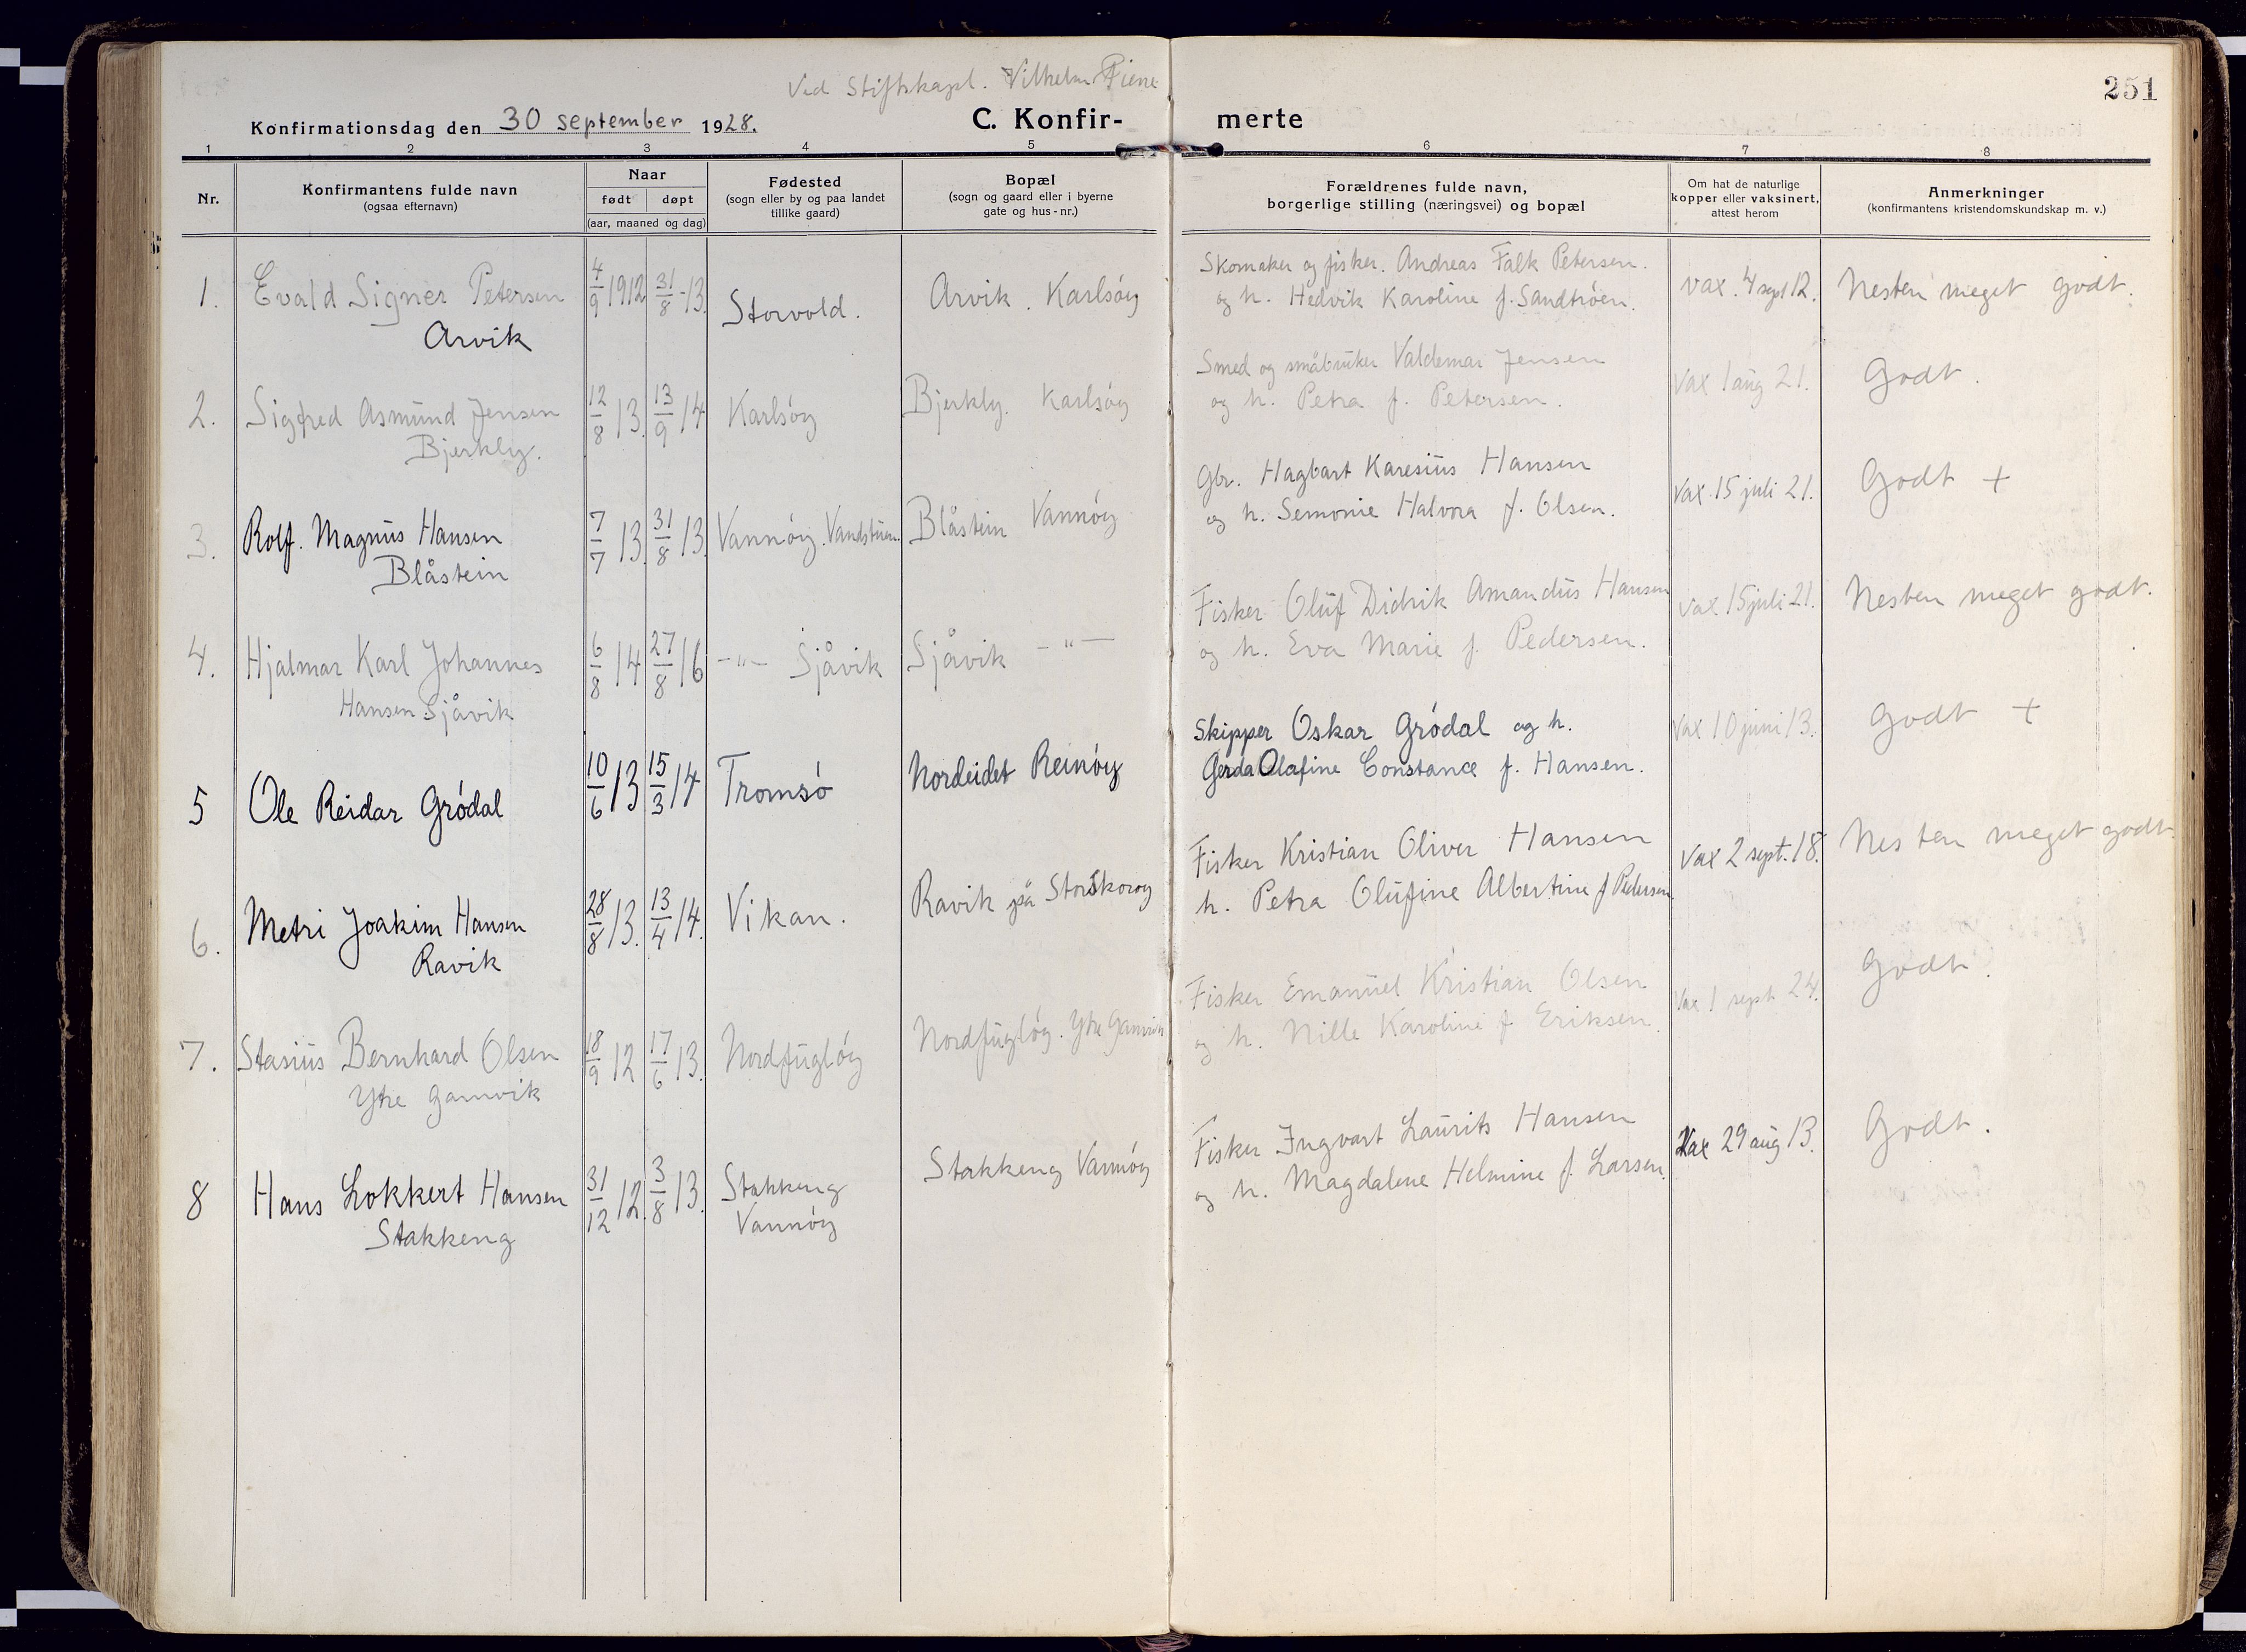 251
Ved Stiftskapl. Vilhelm Piene
Konfirmationsdag den 30 september 1928.
C. Konfir- merte
1 2 3 4 5 6 7 8
Nr.
Konfirmantens fulde navn
(ogsaa efternavn)
Naar
født døpt
(aar, maaned og dag)
Fødested
(sogn eller by og paa landet
tillike gaard)
Bopæl
(sogn og gaard eller i byerne
gate og hus-nr.)
Forældrenes fulde navn,
borgerlige stilling (næringsvei) og bopæl
Om hat de naturlige
kopper eller vaksinert,
attest herom
Anmerkninger
(konfirmantens kristendomskundskap m. v.)
1. Evald Signer Petersen 4/9 1912 31/8-13. Storvold. Arvik. Karlsöy
Arvik
Skomaker og fisker. Andreas Falk Petersen.
og h. Hedvik Karoline f. Sandtröen.
vax. 4 sept 12. Nesten meget godt.
2. Sigfred Asmund Jensen 12/8 13. 13/9 14 Karlsöy Bjerkly. Karlsöy
Bjerkly.
Smed og småbruker Valdemar Jensen
og h. Petra f. Petersen.
Vax 1 aug 21. Godt.
3. Rolf. Magnus Hansen 7/7 13. 31/8 13. Vannöy. Vandstuen. Blåstein Vannöy
Blåstein
Gbr. Hagbart Karesius Hansen
og h. Semonie Halvora f. Olsen.
Vax 15 juli 21. Godt +
4. Hjalmar Karl Johannes 6/8 14 27/8 16 -"- Sjåvik Sjåvik -"-
Hansen Sjåvik
Fisker Oluf Didrik Amandus Hansen
og h. Eva Marie f. Pedersen.
vax 15 juli 21. Nesten meget godt.
5 Ole Reidar Grödal 10/6 13 15/3 14 Tromsö Nordeidet Reinöy
Skipper Oskar Grödal og h.
Gerda Olafine Constance f. Hansen.
Vax 10 juni 13. Godt +
6. Metri Joakim Hansen 28/8 13. 13/4 14. Vikan. Ravik på Storskoroy
Ravik
Fisker Kristian Oliver Hansen
h. Petra Olufine Albertine f Pedersen
Vax 2 sept. 18. Nesten meget godt.
7. Stasius Bernhard Olsen 18/9 12 17/6 13. Nordfuglöy Nordfuglöy. Ytre Gamvik
Ytre Gamvik
Fisker Emanuel Kristian Olsen
og h. Nille Karoline f Eriksen.
Vax 1 sept 24. Godt.
8 Hans Lokkert Hansen 31/12 12. 3/8 13. Stakkeng Stakkeng Vannöy
Stakkeng Vannöy
Fisker Ingvart Laurits Hansen
og h. Magdalene Helmine f. Larsen.
Vax 29 aug 13. Godt.